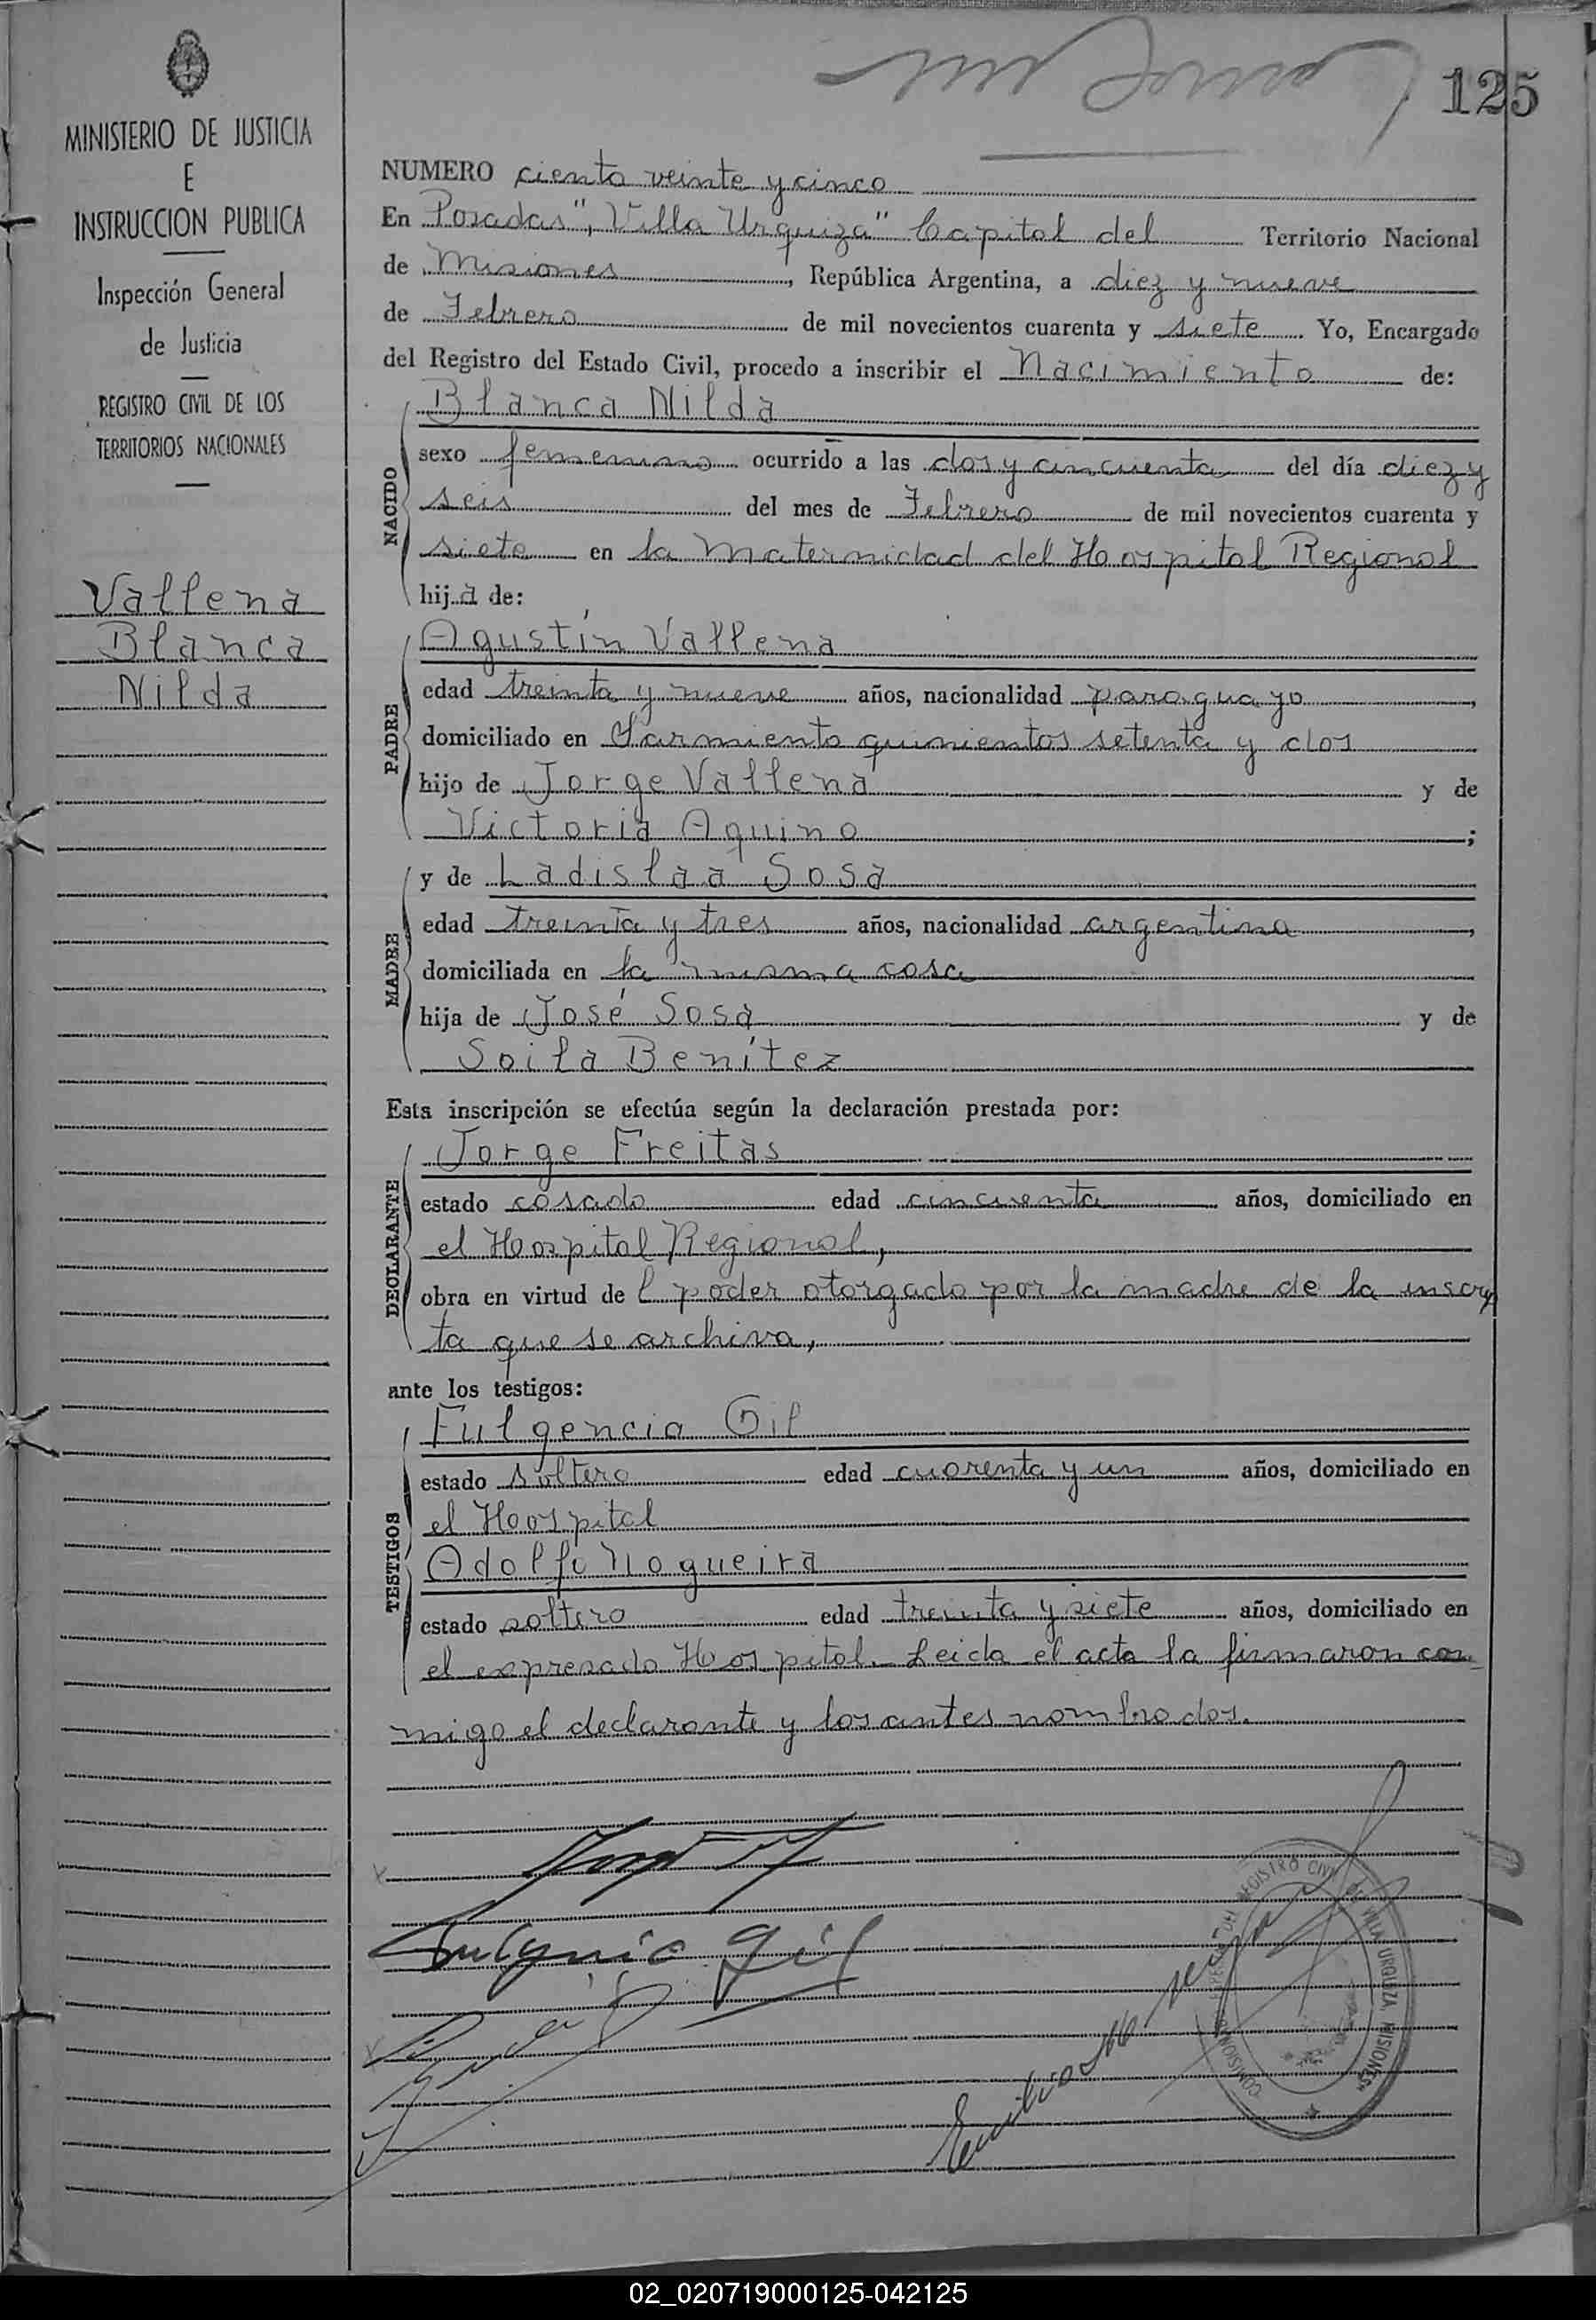 125
MINISTERIO DE JUSTICIA
E
INSTRUCCION PUBLICA
Inspección General
de Justicia
REGISTRO CIVIL DE LOS
TERRITORIOS NACIONALES
Vallena
Blanca
Nilda
NUMERO ciento veinte y cinco
En Posadas", Villa Urquiza" Capital del Territorio Nacional
de Misiones, República Argentina, a diez y nueve
de Febrero de mil novecientos cuarenta y siete. Yo, Encargado
del Registro del Estado Civil, procedo a inscribir el Nacimiento de:
Blanca Nilda
NACIDO
sexo femenino ocurrido a las dos y cincuenta del día diez y
seis del mes de Febrero de mil novecientos cuarenta y
siete en la Maternidad del Hospital Regional
hija de:
Agustín Vallena
PADRE
edad treinta y nueve años, nacionalidad paraguayo,
domiciliado en Sarmiento quinientos setenta y dos
hijo de Jorge Vallena y de
Victoria Aquino;
y de Ladislaa Sosa
MADRE
edad treinta y tres años, nacionalidad argentina,
domiciliada en la misma casa
hija de José Sosa y de
Soila Benítez
Esta inscripción se efectúa según la declaración prestada por:
Jorge Freitas
DECLARANTE
estado casado edad cincuenta años, domiciliado en
el Hospital Regional,
obra en virtud del poder otorgado por la madre de la inscrip
ta que se archiva,
ante los testigos:
Fulgencio Gil
TESTIGOS
estado soltero edad cuarenta y un años, domiciliado en
el Hospital
Adolfo Nogueira
estado soltero edad treinta y siete años, domiciliado en
el expresado Hospital. Leida el acta la firmaron con
migo el declarante y los antes nombrados.
Fulgencio Gil
REGISTRO CIVIL DE VILLA URQUIZA MISIONES
02_020719000125-042125